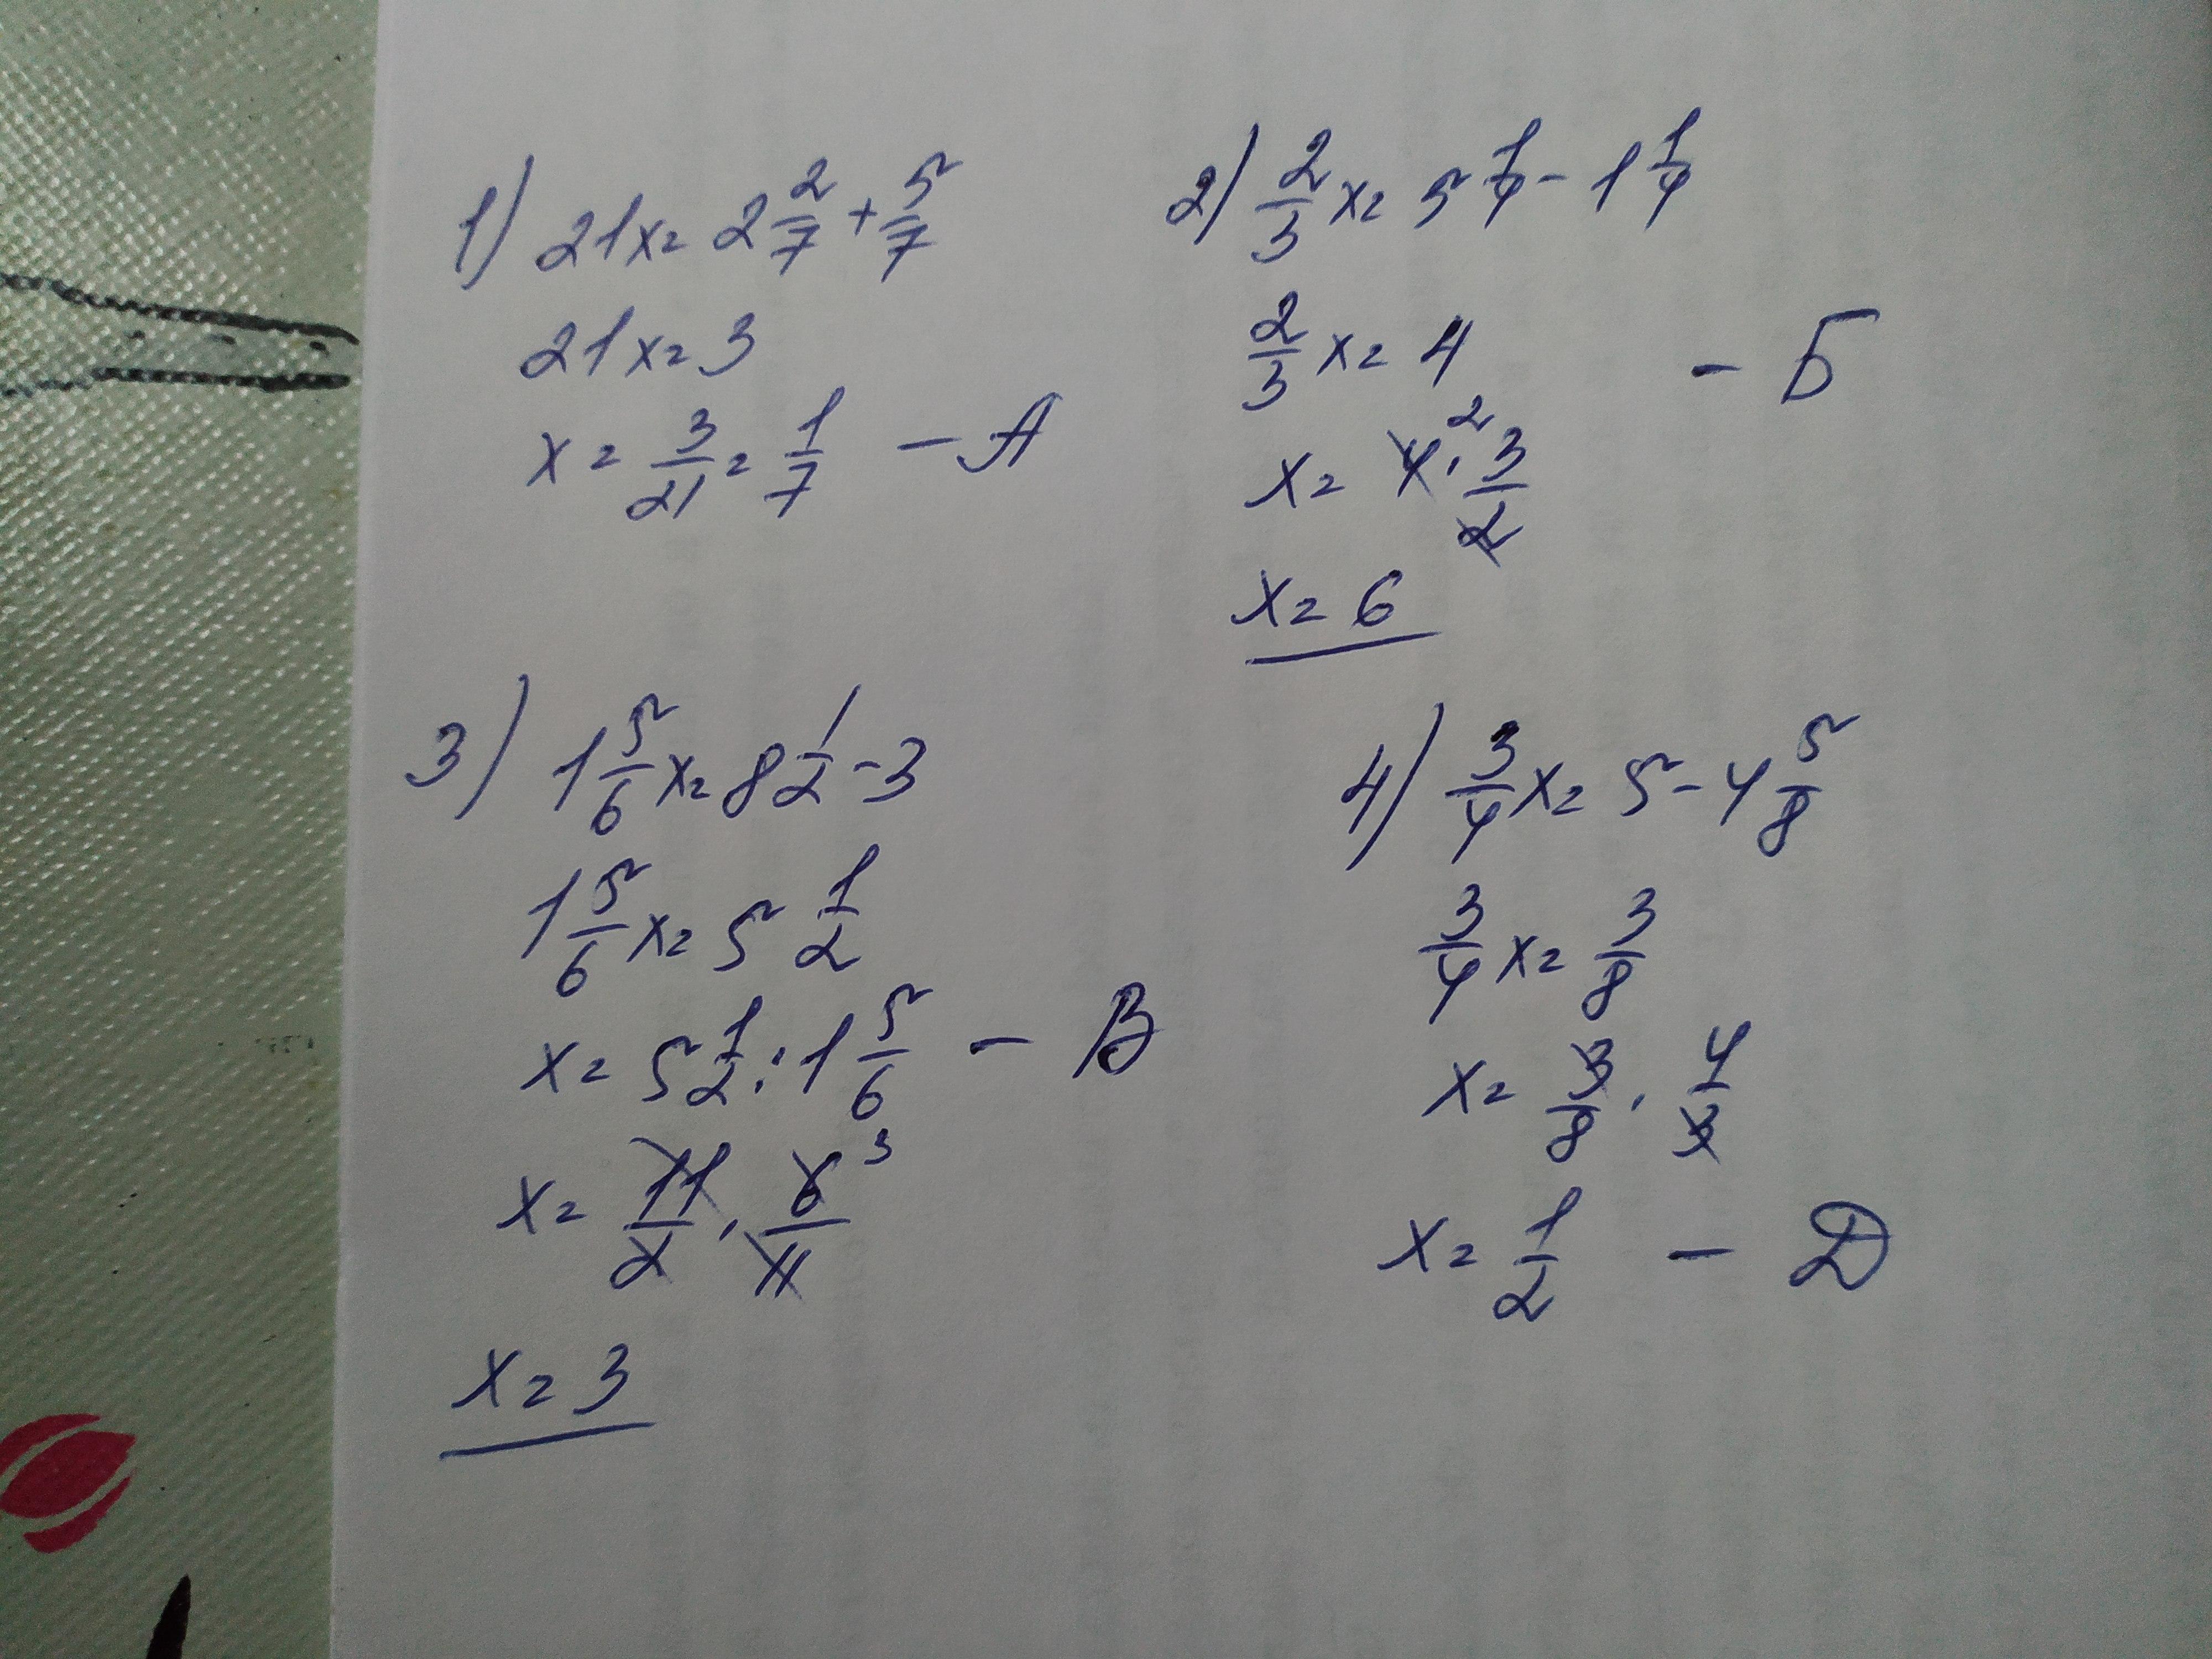 1) 21x = 2 2/7 + 5/7
21x = 3
x = 3/21 = 1/7 – А
2) 2/3 x = 5 1/4 – 1 1/4
2/3 x = 4 – Б
x = 4² · 3/2
x = 6
3) 1 5/6 x = 8 1/2 – 3
1 5/6 x = 5 1/2
x = 5 1/2 : 1 5/6 – В
x = 11/2 · 6³/11
x = 3
4) 3/4 x = 5 – 4 5/8
3/4 x = 3/8
x = 3/8 · 4/3
x = 1/2 – D